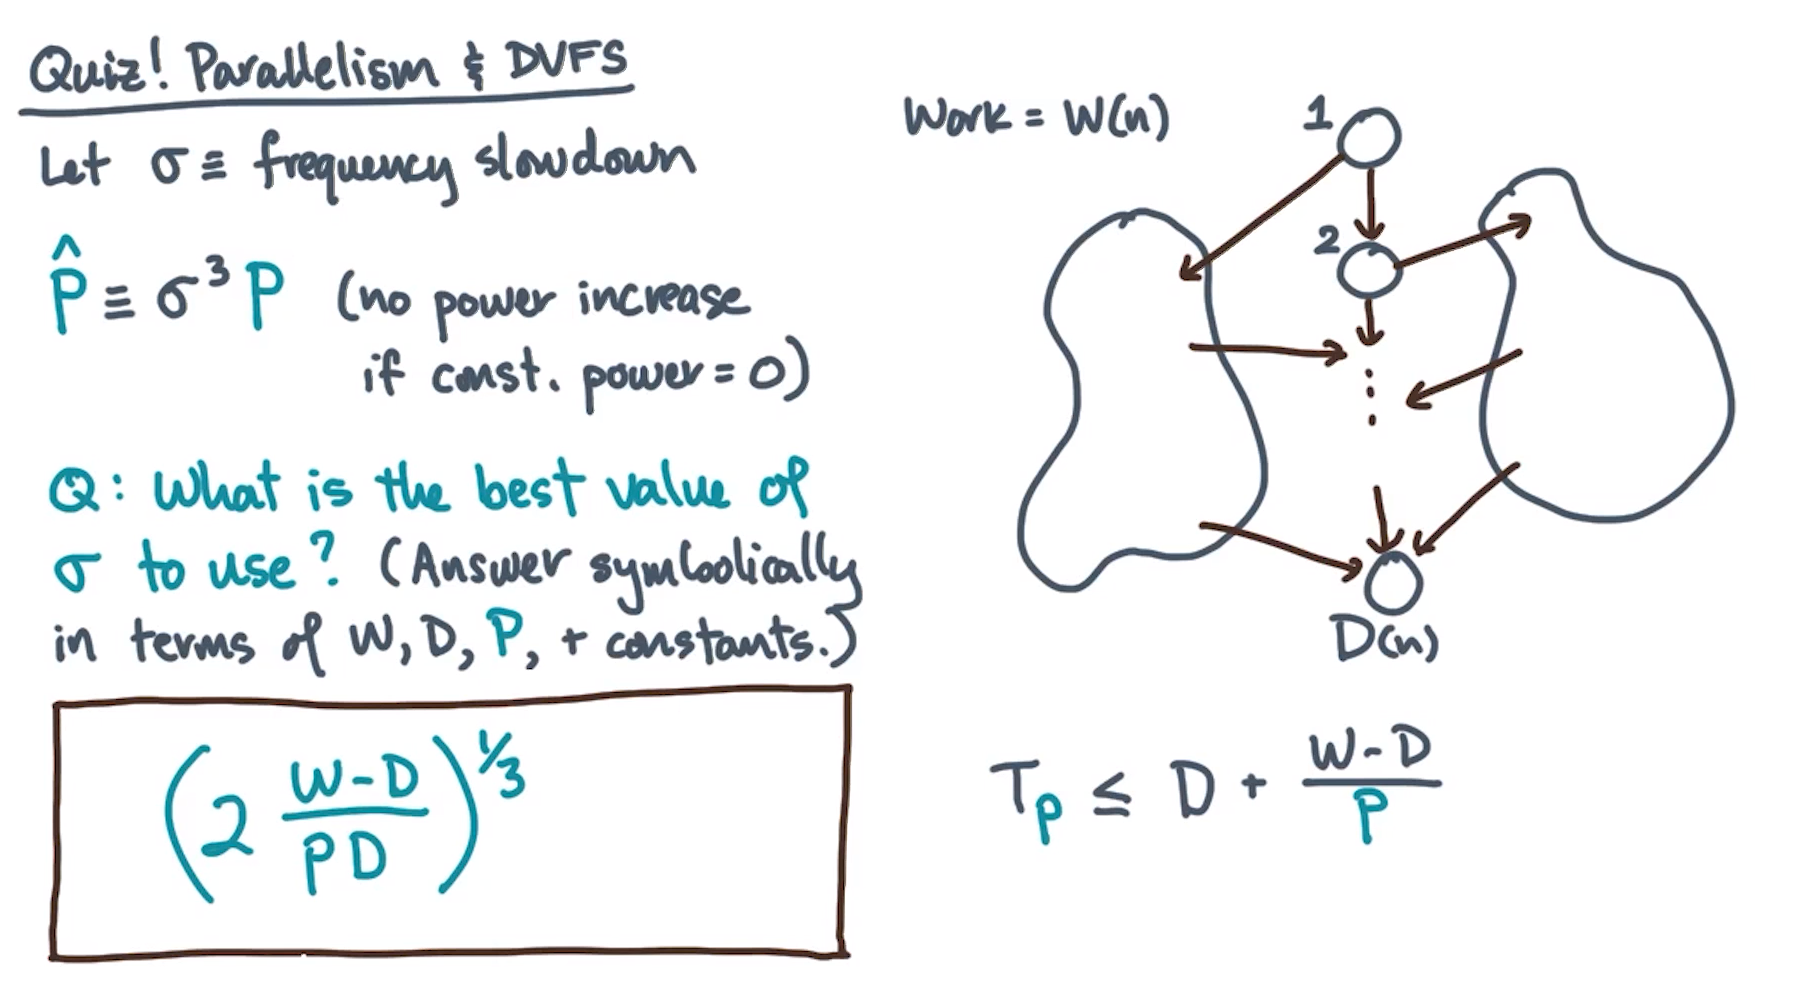 Quiz! Parallelism & DVFS
Let σ ≡ frequency slowdown
P̂ ≡ σ³ P (no power increase
if const. power = 0)
Q: What is the best value of
σ to use? (Answer symbolically
in terms of W, D, P, + constants.)
(2 (W-D)/(PD))^(1/3)
Work = W(n)
1
2
⋮
D(n)
T_P ≤ D + (W-D)/P